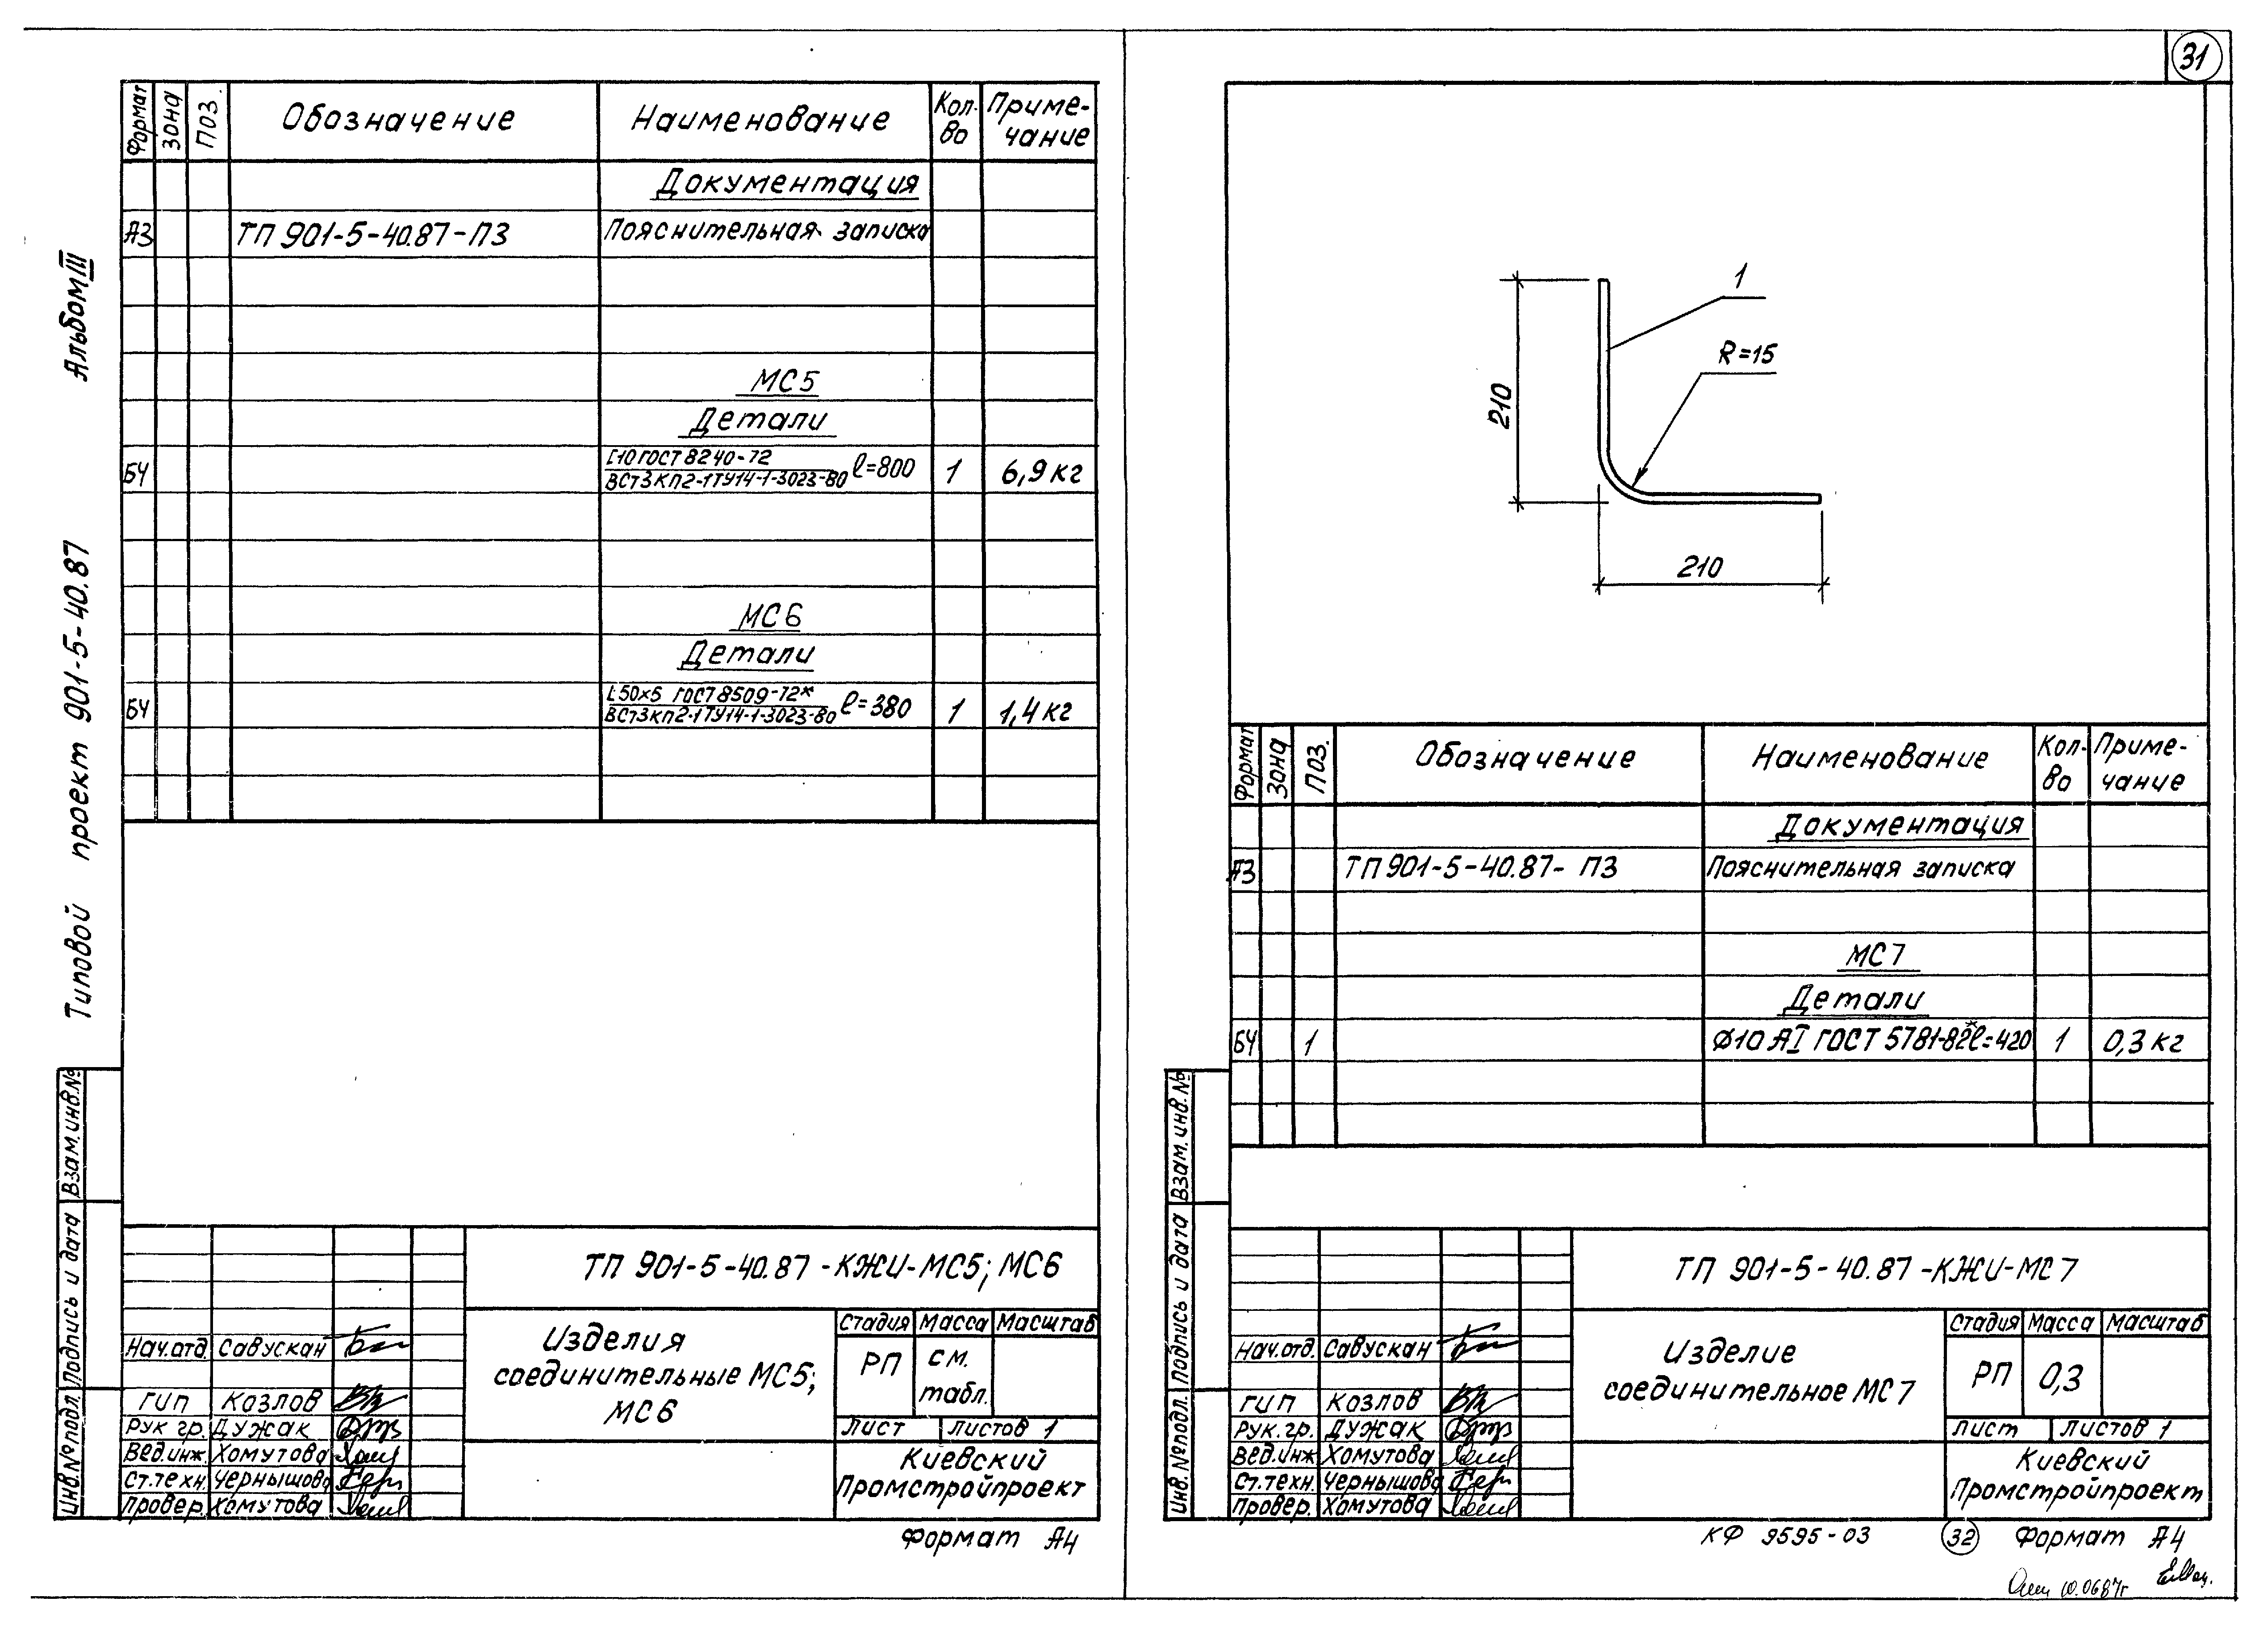 31
Альбом III
Типовой проект 901-5-40.87
Формат Зона Поз. Обозначение Наименование Кол-во Приме-чание
Документация
А3 ТП 901-5-40.87-ПЗ Пояснительная записка
МС5
Детали
БЧ [10 ГОСТ 8240-72 / ВСт3кп2-1 ТУ14-1-3023-80 ℓ=800 1 6,9 кг
МС6
Детали
БЧ L50×5 ГОСТ 8509-72* / ВСт3кп2-1 ТУ14-1-3023-80 ℓ=380 1 1,4 кг
Взам. инв. №
Подпись и дата
Инв. № подл.
ТП 901-5-40.87-КЖИ-МС5; МС6
Нач.отд. Савускан
ГИП Козлов
Рук. гр. Дужак
Вед.инж. Хомутова
Ст.техн. Чернышова
Провер. Хомутова
Изделия
соединительные МС5;
МС6
Стадия Масса Масштаб
РП см. табл.
Лист Листов 1
Киевский
Промстройпроект
Формат А4
1
R=15
210
210
Формат Зона Поз. Обозначение Наименование Кол-во Приме-чание
Документация
А3 ТП 901-5-40.87-ПЗ Пояснительная записка
МС7
Детали
БЧ 1 Ø10 АI ГОСТ 5781-82* ℓ=420 1 0,3 кг
Взам. инв. №
Подпись и дата
Инв. № подл.
ТП 901-5-40.87-КЖИ-МС7
Нач.отд. Савускан
ГИП Козлов
Рук. гр. Дужак
Вед.инж. Хомутова
Ст.техн. Чернышова
Провер. Хомутова
Изделие
соединительное МС7
Стадия Масса Масштаб
РП 0,3
Лист Листов 1
Киевский
Промстройпроект
КФ 9595-03 32 Формат А4